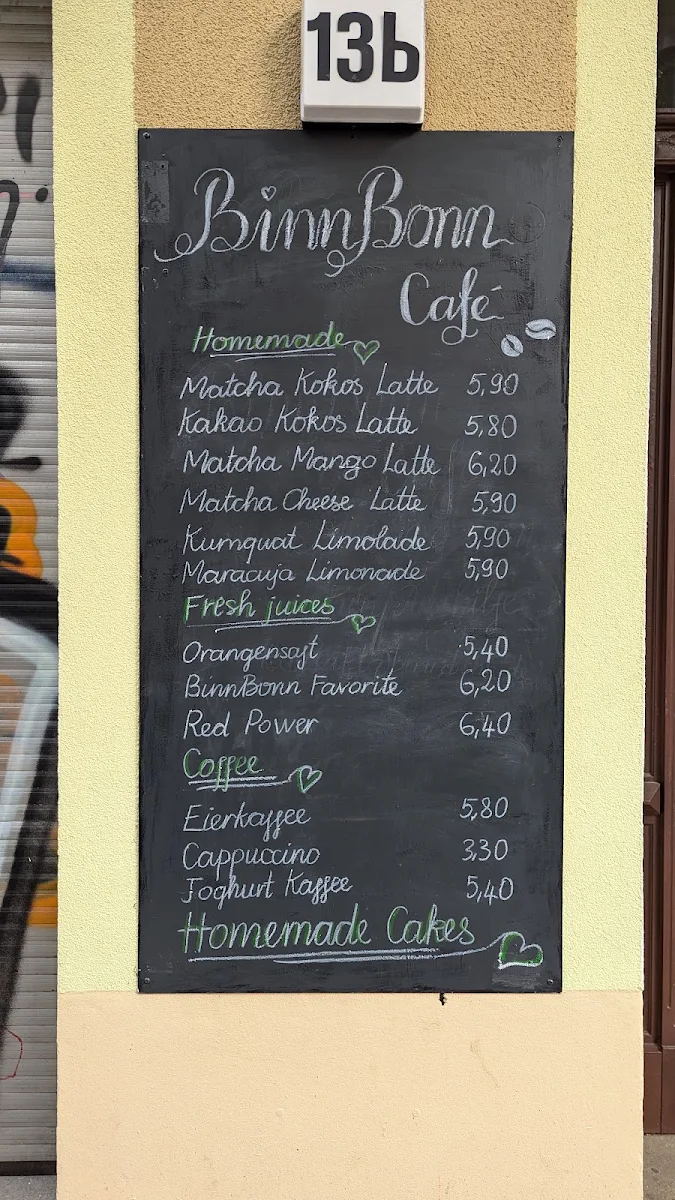 13b
BinnBonn
Café
Homemade
Matcha Kokos Latte 5,90
Kakao Kokos Latte 5,80
Matcha Mango Latte 6,20
Matcha Cheese Latte 5,90
Kumquat Limolade 5,90
Maracuja Limonade 5,90
Fresh juices
Orangensaft 5,40
BinnBonn Favorite 6,20
Red Power 6,40
Coffee
Eierkaffee 5,80
Cappuccino 3,30
Joghurt Kaffee 5,40
Homemade Cakes